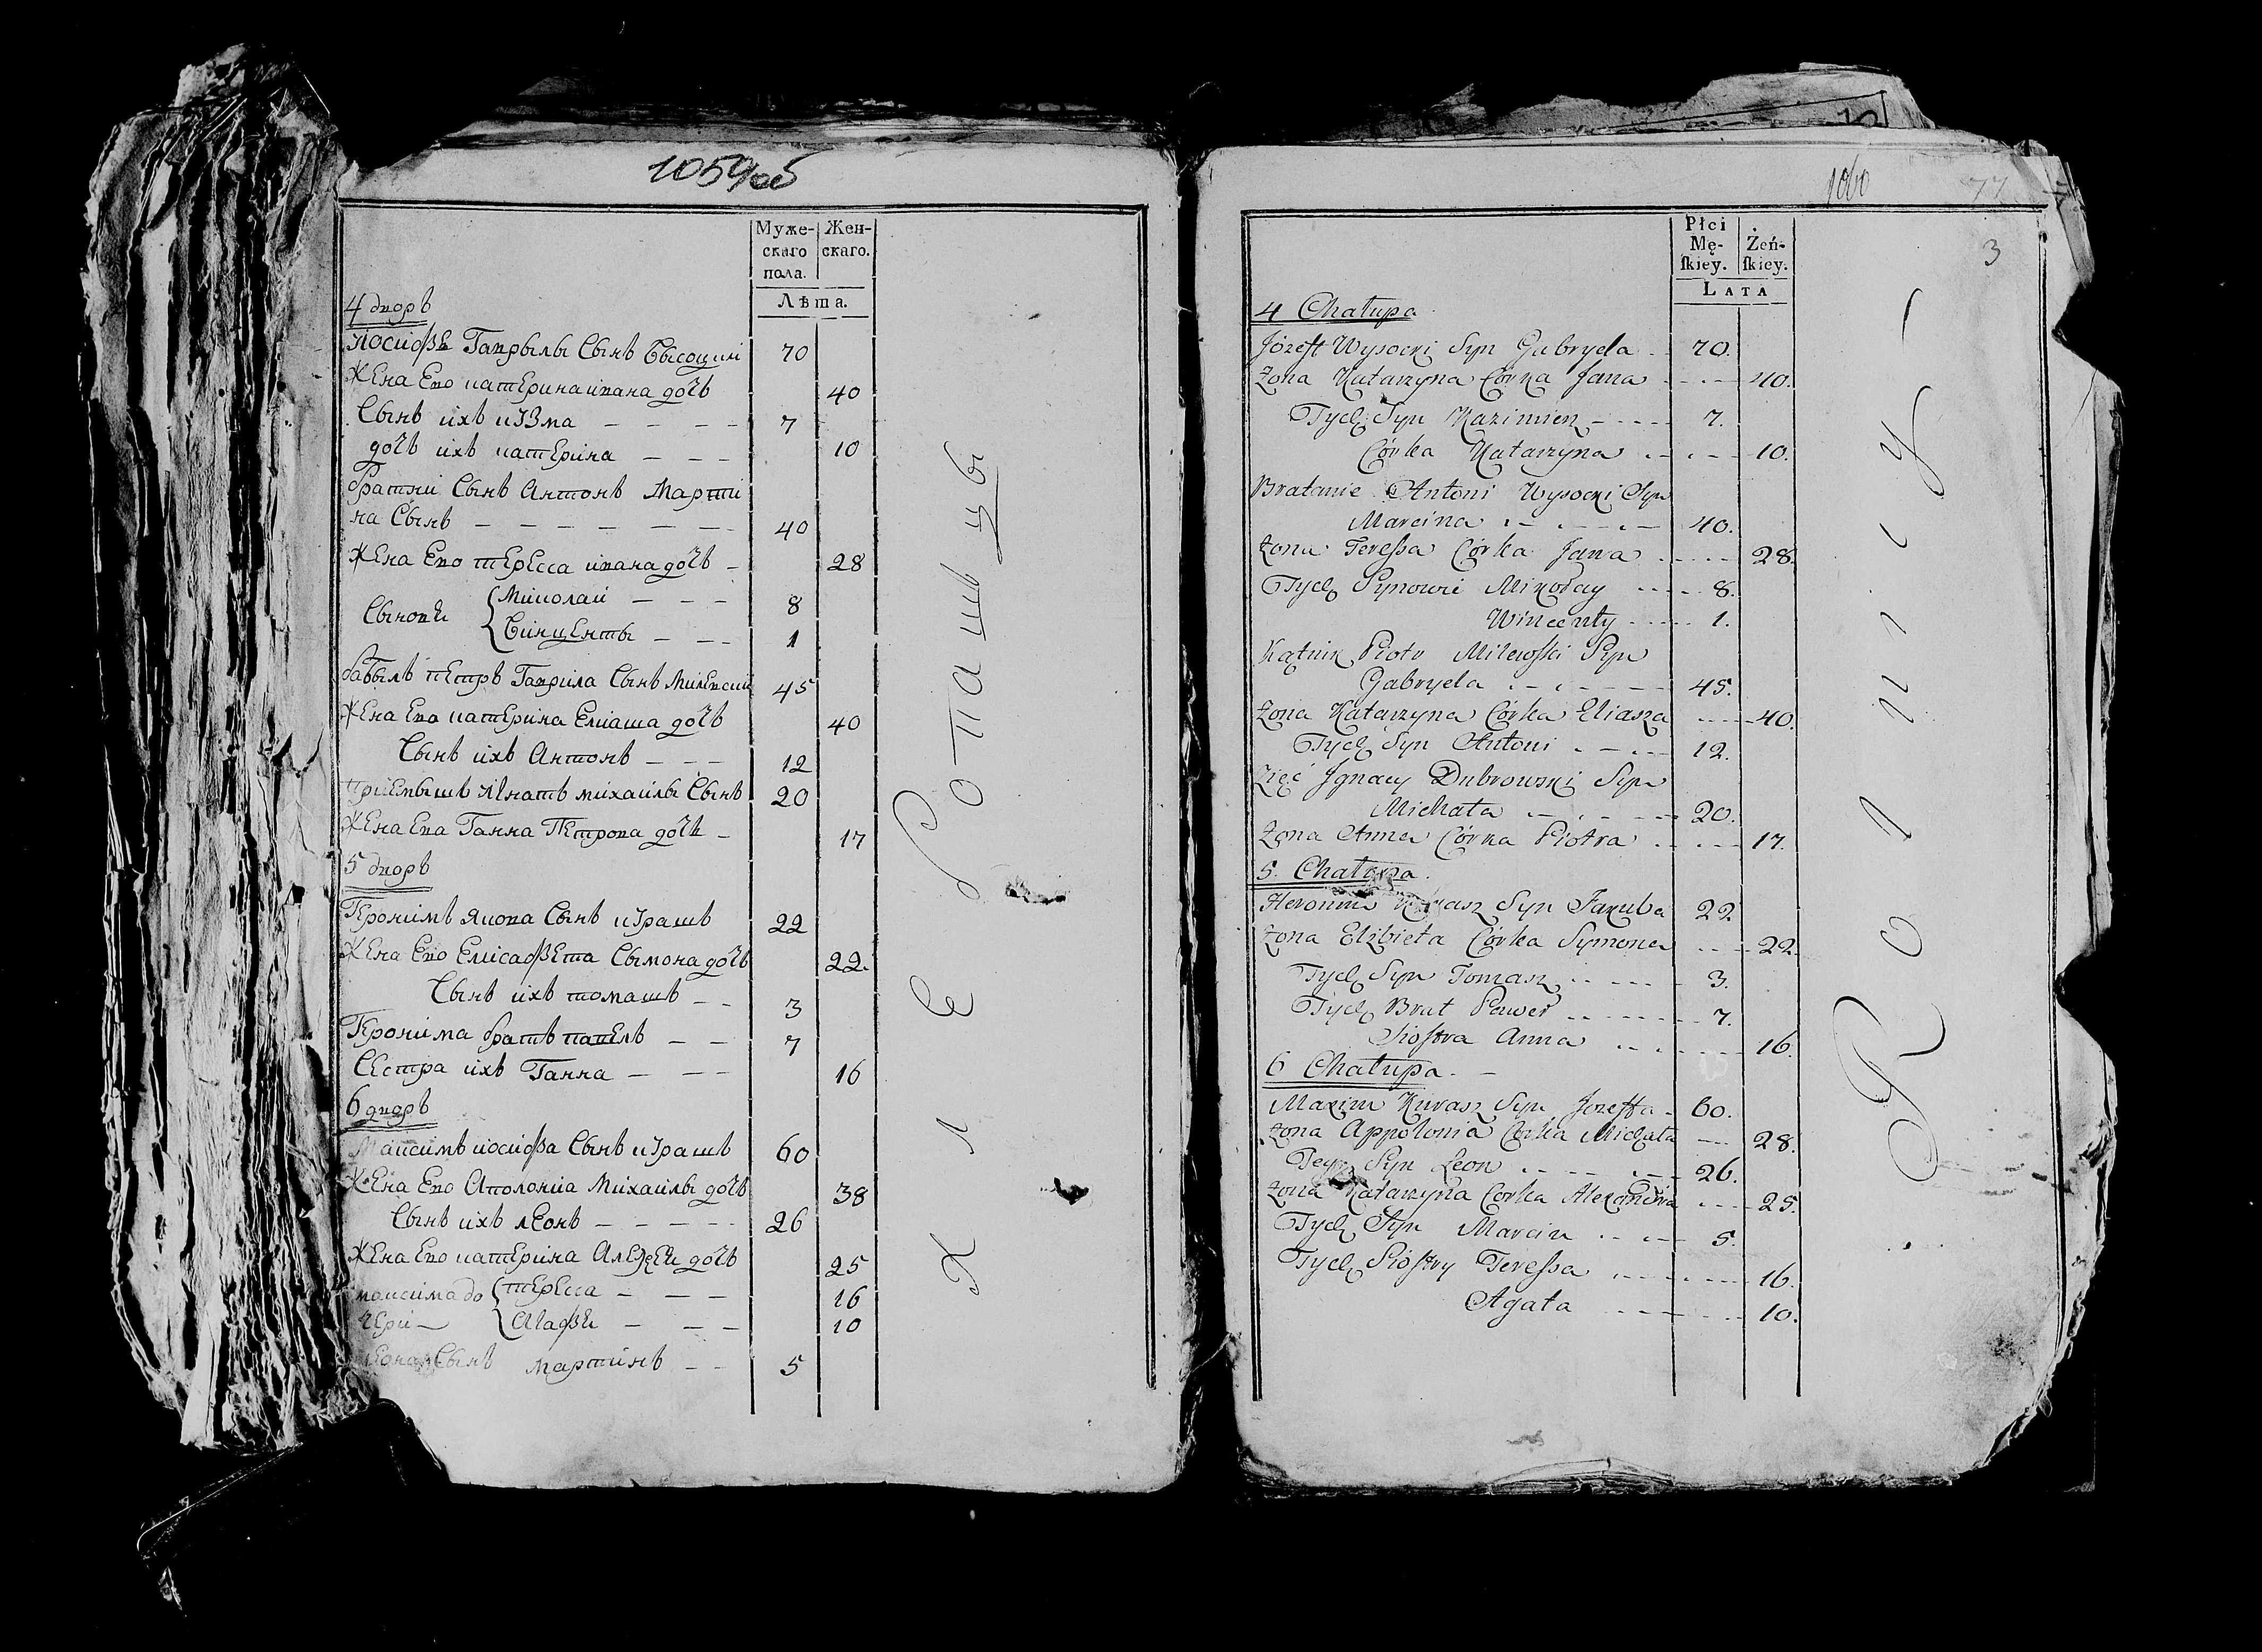 1059об
Муже-
скаго
пола.
Жен-
скаго.
Лѣта.
4 дворъ
Иосифъ Гаврылы Сынъ Высоцкий 70
Жена Ево катерина ивана дочь 40
Сынъ ихъ кузма — — — — 7
дочь ихъ катерина — — — 10
братни Сынъ Антонъ Марти
на Сынъ — — — — — — 40
Жена Ево тересса ивана дочь — 28
Сынове
Миколай — — — 8
Винценты — — — 1
бабыль петръ Гаврила Сынъ Милевский 45
Жена Ево катерина Елиаша дочь 40
Сынъ ихъ Антонъ — — — 12
приемышъ игнатъ михайлы Сынъ 20
Жена Ево Ганна Петрова дочь — 17
5 дворъ
Геронимъ Якова Сынъ курашъ 22
Жена Ево Елисафета Сымона дочь 22.
Сынъ ихъ томашъ — — 3
Геронима братъ павелъ — — 7
Сестра ихъ Ганна — — — 16
6 дворъ
Максимъ иосифа Сынъ курашъ 60
Жена Ево Аполониа Михайлы дочь 38
Сынъ ихъ леонъ — — — — — 26
Жена Ево катерина дочь 25
максима до
чери —
тересса — — — 16
Агафе — — — 10
Сынъ мартинъ — — 5
Хлеропашцы
1060
77
3
Płci
Mę-
ſkiey.
Żeń-
ſkiey.
LATA
4 Chałupa
Józeff Wysocki Syn Gabryela 70.
Zona Katarzyna Córka Jana 40.
Tych Syn Kazimierz 7.
Córka Katarzyna 10.
Bratanie Antoni Wysocki Syn
Marcina 40.
Zona Teressa Córka Jana 28.
Tych Synowie Mikołay 8.
Wincenty 1.
Kątnik Piotr Milewski Syn
Gabryela 45.
Zona Katarzyna Córka Eliasza 40.
Tych Syn Antoni 12.
Zięć Jgnacy Dubrowski Syn
Michała 20.
Zona Anna Córka Piotra 17.
5. Chałupa.
Heronim Syn Jakuba 22
Zona Elzbieta Córka Symona 22.
Tych Syn Tomasz 3.
Tych Brat Paweł 7.
Siostra Anna 16.
6 Chałupa. —
Maxim Kurasz Syn Jozeffa 60.
Zona Appolonia Córka Michała 28.
Syn Leon 26.
Zona Katarzyna Corka Alexandra 25.
Tych Syn Marcin 5.
Tych Siostry Teressa 16.
Agata 10.
Rolnicy